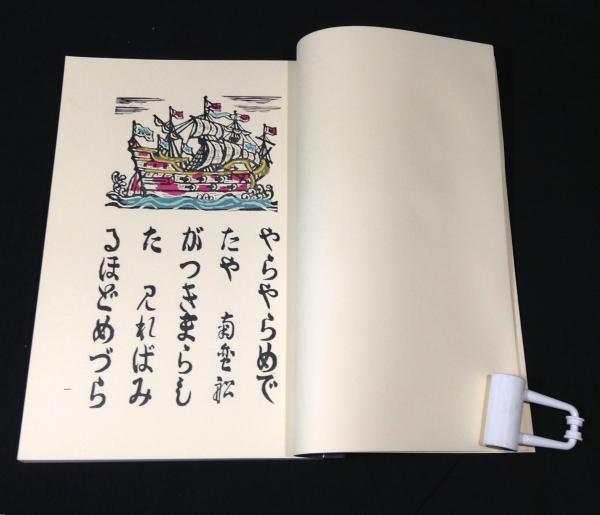 やらやらめで
たや 南蛮船
がつきまらし
た 見ればみ
るほどめづら
一